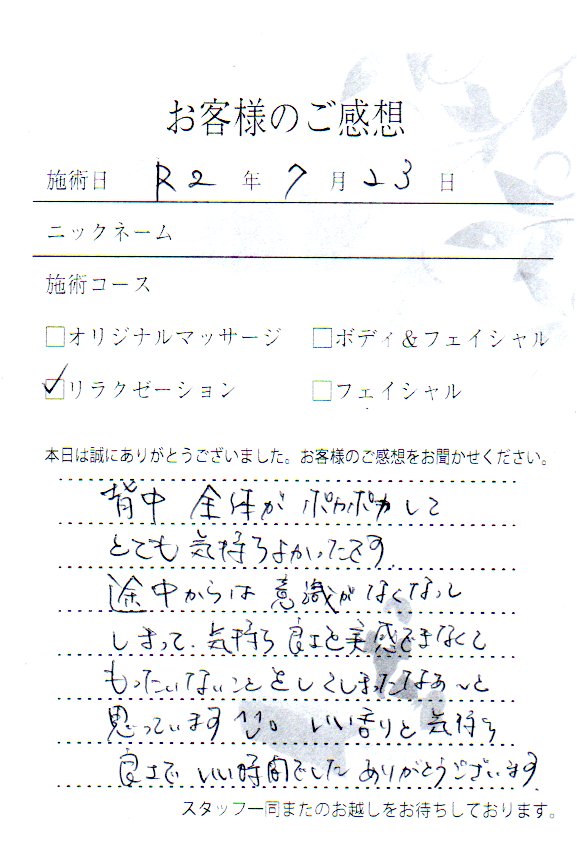 お客様のご感想
施術日 R2 年 7 月 23 日
ニックネーム
施術コース
オリジナルマッサージ ボディ&フェイシャル
リラクゼーション フェイシャル
本日は誠にありがとうございました。お客様のご感想をお聞かせください。
背中全体がポカポカして
とても気持ちよかったです
途中からは意識がなくなっし
しまって、気持ち良さと実感できなくて
もったいないことをしてしまったなぁ〜と
思っています。いい香りと気持ち
良さでいい時間でした ありがとうございます
スタッフ一同またのお越しをお待ちしております。